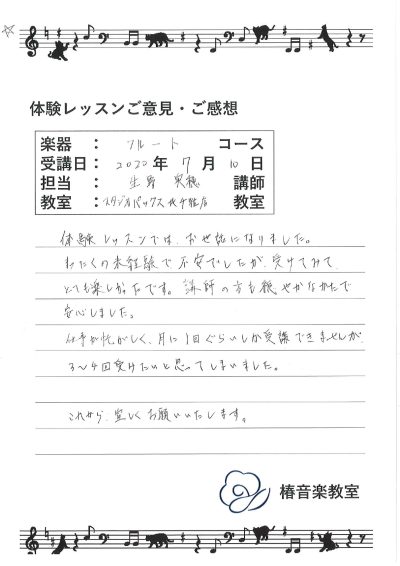 体験レッスンご意見・ご感想
楽器 : フルート コース
受講日: 2020年 7月 10日
担当 : 生野 実穂 講師
教室 : スタジオパックス代々木店 教室
体験レッスンでは、お世話になりました。
まったくの未経験で不安でしたが、受けてみて、
とても楽しかったです。講師の方も穏やかなかたで
安心しました。
仕事が忙がしく、月に1回ぐらいしか受講できませんが、
3〜4回受けたいと思ってしまいました。
これから、宜しくお願いいたします。
椿音楽教室